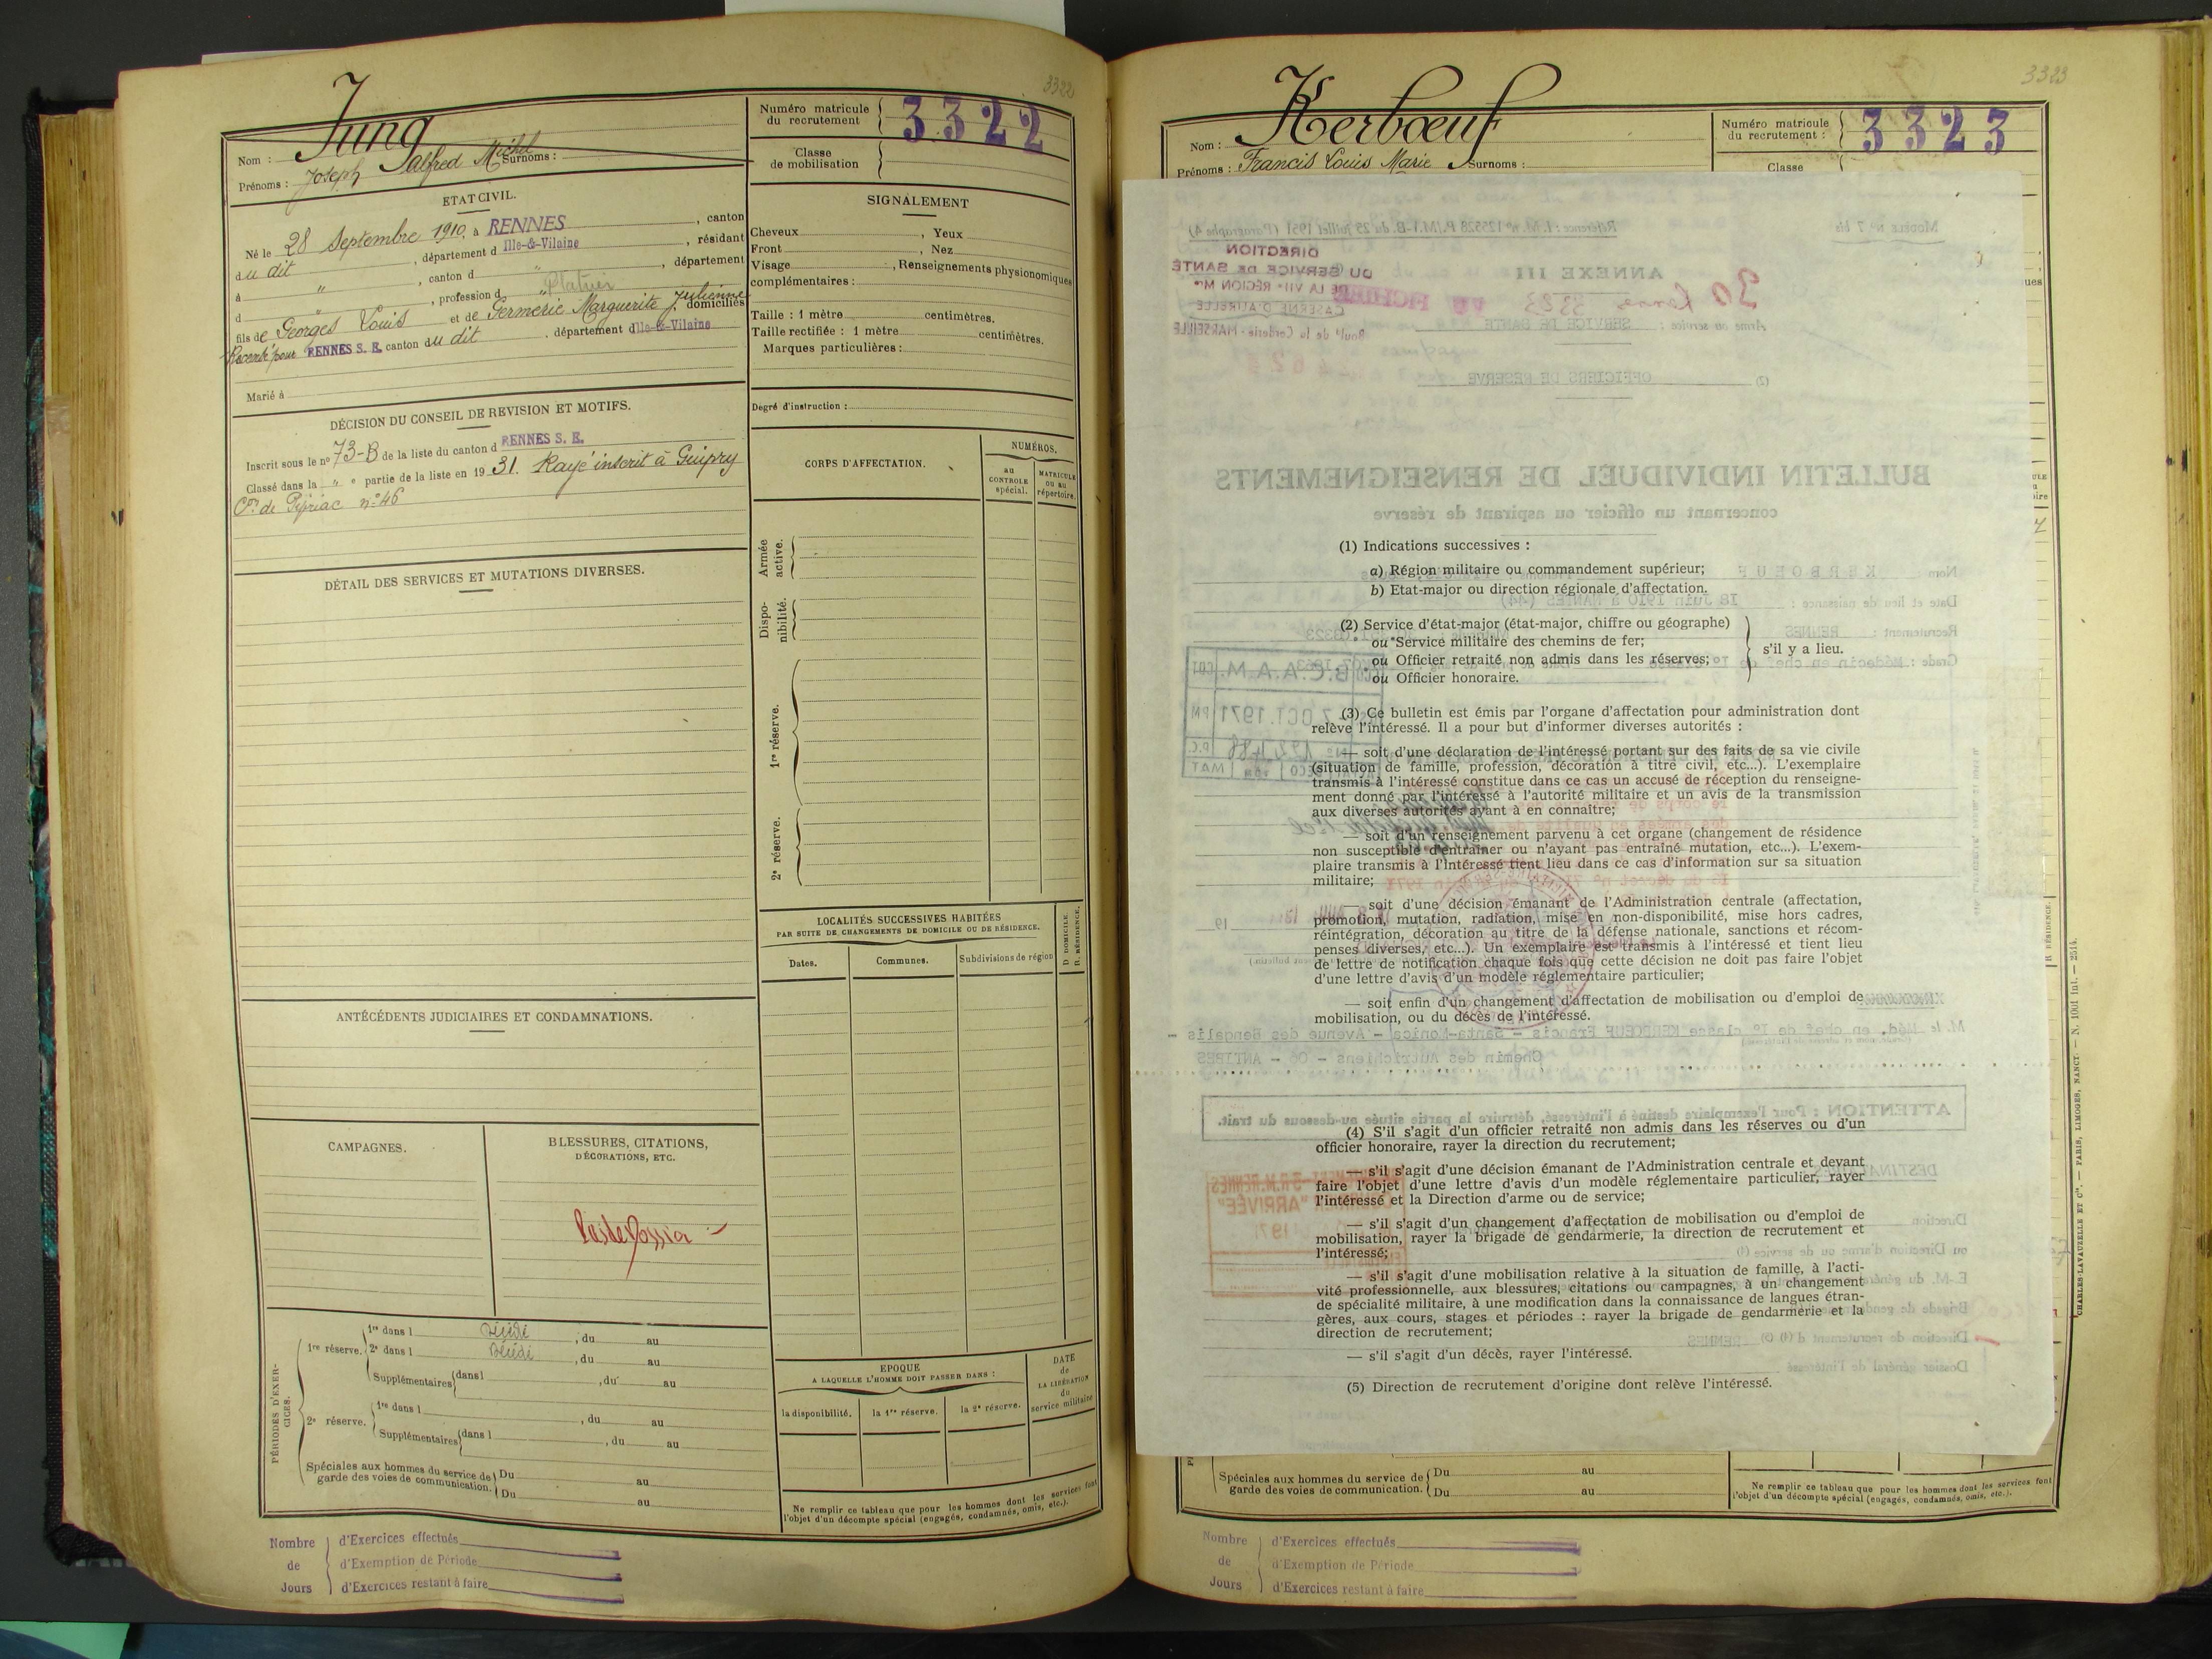 3322
Jung
Nom :
Surnoms :
Prénoms : Joseph Alfred Michel
Numéro matricule
du recrutement
3322
Classe
de mobilisation
ETAT CIVIL.
Né le 28 Septembre 1910, à RENNES, canton
du dit, département d Ille-&-Vilaine, résidant
à ", canton d ", département
d ", profession d Platrier
fils de Georges Louis et de Germerie Marguerite J. Julienne domiciliés
Recensé pour RENNES S. E. canton du dit, département d Ille-&-Vilaine
Marié à
DÉCISION DU CONSEIL DE REVISION ET MOTIFS.
Inscrit sous le no 73-B de la liste du canton d RENNES S. E.
Classé dans la " e partie de la liste en 1931. Rayé inscrit à Guipry
Con de Pipriac no 46
DÉTAIL DES SERVICES ET MUTATIONS DIVERSES.
ANTÉCÉDENTS JUDICIAIRES ET CONDAMNATIONS.
CAMPAGNES.
BLESSURES, CITATIONS,
DÉCORATIONS, ETC.
Pas de Dossier
PÉRIODES D'EXER-
CICES.
1re réserve.
1re dans l Décédé, du au
2e dans l Décédé, du au
Supplémentaires dans l, du au
2e réserve.
1re dans l, du au
Supplémentaires dans l, du au
Spéciales aux hommes du service de
garde des voies de communication.
Du au
Du au
Nombre
de
Jours
d'Exercices effectués
d'Exemption de Période
d'Exercices restant à faire
SIGNALEMENT
Cheveux, Yeux
Front, Nez
Visage, Renseignements physionomiques
complémentaires :
Taille : 1 mètre centimètres.
Taille rectifiée : 1 mètre centimètres.
Marques particulières :
Degré d'instruction :
CORPS D'AFFECTATION.
NUMÉROS.
au
CONTROLE
spécial.
MATRICULE
ou au
répertoire.
Armée
active.
Dispo-
nibilité.
1re réserve.
2e réserve.
LOCALITÉS SUCCESSIVES HABITÉES
PAR SUITE DE CHANGEMENTS DE DOMICILE OU DE RÉSIDENCE.
D. DOMICILE.
R. RÉSIDENCE.
Dates.
Communes.
Subdivisions de région
EPOQUE
A LAQUELLE L'HOMME DOIT PASSER DANS :
la disponibilité.
la 1re réserve.
la 2e réserve.
DATE
de
LA LIBÉRATION
du
service militaire
Ne remplir ce tableau que pour les hommes dont les services font
l'objet d'un décompte spécial (engagés, condamnés, omis, etc.).
3323
Kerbœuf
Nom :
Prénoms : Francis Louis Marie Surnoms :
Numéro matricule
du recrutement :
3323
Classe
MODÈLE N° 7 bis
Référence : I.M. n° 125528 P.M./1-B. du 25 juillet 1951 (Paragraphe 4)
DIRECTION
DU SERVICE DE SANTÉ
DE LA VIIe RÉGION Mre
CASERNE D'AURELLE
Bould de la Corderie - MARSEILLE
ANNEXE III
Arme ou service : SERVICE DE SANTE
(2) OFFICIERS DE RESERVE
BULLETIN INDIVIDUEL DE RENSEIGNEMENTS
concernant un officier ou aspirant de réserve
(1) Indications successives :
a) Région militaire ou commandement supérieur;
b) Etat-major ou direction régionale d'affectation.
Nom : KERBOEUF
Date et lieu de naissance : 18 Juin 1910 à NANTES (44)
Recrutement : RENNES
(2) Service d'état-major (état-major, chiffre ou géographe)
ou Service militaire des chemins de fer;
ou Officier retraité non admis dans les réserves;
ou Officier honoraire.
s'il y a lieu.
B.C.A.A.M.
7 OCT. 1971
(3) Ce bulletin est émis par l'organe d'affectation pour administration dont
relève l'intéressé. Il a pour but d'informer diverses autorités :
— soit d'une déclaration de l'intéressé portant sur des faits de sa vie civile
(situation de famille, profession, décoration à titre civil, etc...). L'exemplaire
transmis à l'intéressé constitue dans ce cas un accusé de réception du renseigne-
ment donné par l'intéressé à l'autorité militaire et un avis de la transmission
aux diverses autorités ayant à en connaître;
— soit d'un renseignement parvenu à cet organe (changement de résidence
non susceptible d'entraîner ou n'ayant pas entraîné mutation, etc...). L'exem-
plaire transmis à l'intéressé tient lieu dans ce cas d'information sur sa situation
militaire;
— soit d'une décision émanant de l'Administration centrale (affectation,
promotion, mutation, radiation, mise en non-disponibilité, mise hors cadres,
réintégration, décoration au titre de la défense nationale, sanctions et récom-
penses diverses, etc...). Un exemplaire est transmis à l'intéressé et tient lieu
de lettre de notification chaque fois que cette décision ne doit pas faire l'objet
d'une lettre d'avis d'un modèle réglementaire particulier;
— soit enfin d'un changement d'affectation de mobilisation ou d'emploi de
mobilisation, ou du décès de l'intéressé.
M. le Méd. en chef de I° classe KERBOEUF Francis - Santa-Monica - Avenue des Bengalis -
Chemin des Autrichiens - 06 - ANTIBES
ATTENTION : Pour l'exemplaire destiné à l'intéressé, détruire la partie située au-dessous du trait.
(4) S'il s'agit d'un officier retraité non admis dans les réserves ou d'un
officier honoraire, rayer la direction du recrutement;
DESTINATAIRES
— s'il s'agit d'une décision émanant de l'Administration centrale et devant
faire l'objet d'une lettre d'avis d'un modèle réglementaire particulier, rayer
l'intéressé et la Direction d'arme ou de service;
— s'il s'agit d'un changement d'affectation de mobilisation ou d'emploi de
mobilisation, rayer la brigade de gendarmerie, la direction de recrutement et
l'intéressé;
— s'il s'agit d'une mobilisation relative à la situation de famille, à l'acti-
vité professionnelle, aux blessures, citations ou campagnes, à un changement
de spécialité militaire, à une modification dans la connaissance de langues étran-
gères, aux cours, stages et périodes : rayer la brigade de gendarmerie et la
direction de recrutement;
— s'il s'agit d'un décès, rayer l'intéressé.
(5) Direction de recrutement d'origine dont relève l'intéressé.
Spéciales aux hommes du service de
garde des voies de communication.
Du au
Du au
Ne remplir ce tableau que pour les hommes dont les services font
l'objet d'un décompte spécial (engagés, condamnés, omis, etc.).
Nombre
de
Jours
d'Exercices effectués
d'Exemption de Période
d'Exercices restant à faire
R. RÉSIDENCE.
CHARLES-LAVAUZELLE ET Cie. — PARIS, LIMOGES, NANCY. — N. 1001 int. — 2514.